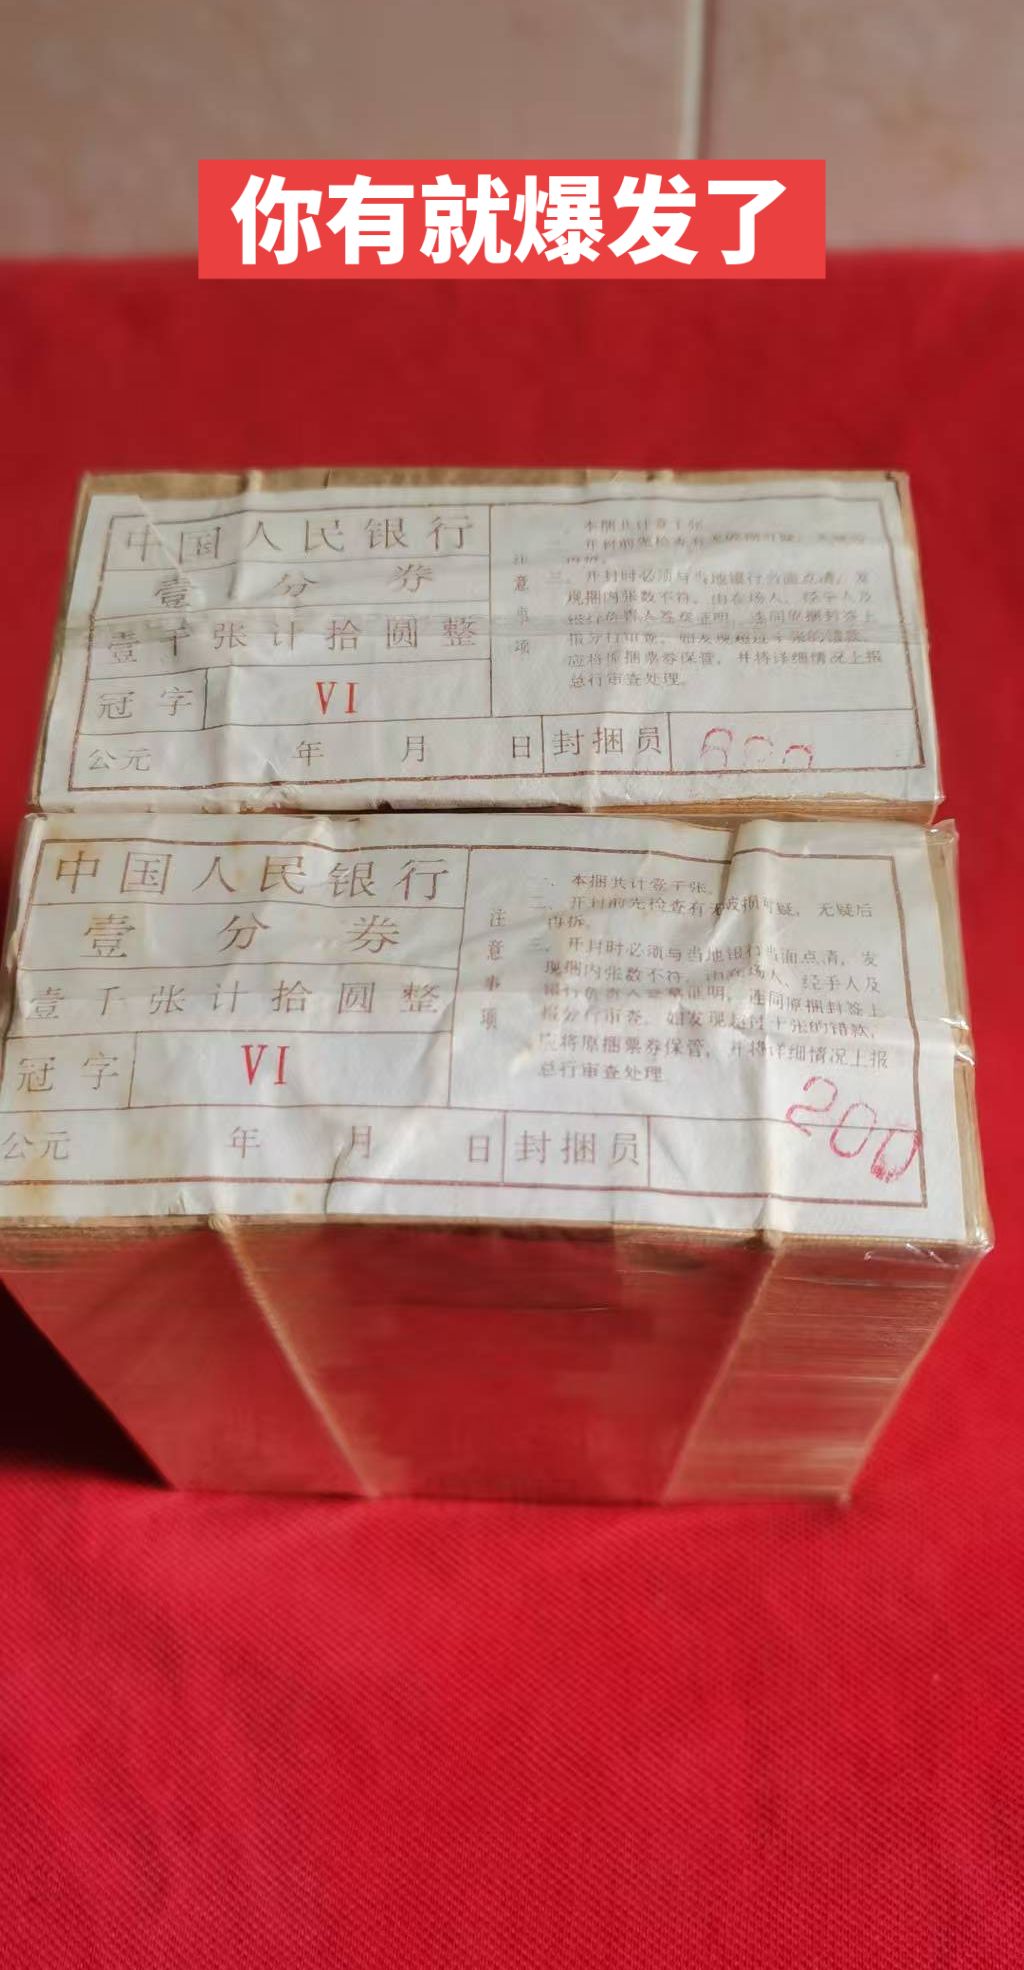 你有就爆发了
中国人民银行
壹分券
壹千张计拾圆整
冠字 VI
公元 年 月 日 封捆员
注意事项
一、本捆共计壹千张。
再拆。
三、开封时必须与当地银行当面点清，发
现捆内张数不符，由在场人、经手人及
应将原捆票券保管，并将详细情况上报
总行审查处理。
中国人民银行
壹分券
壹千张计拾圆整
冠字 VI
公元 年 月 日 封捆员
注意事项
一、本捆共计壹千张。
二、开封前先检查有无破损可疑，无疑后
再拆。
三、开封时必须与当地银行当面点清，发
现捆内张数不符，由在场人、经手人及
银行负责人签章证明，连同原捆封签上
报分行审查。如发现超过十张的错款，
应将原捆票券保管，并将详细情况上报
总行审查处理
200